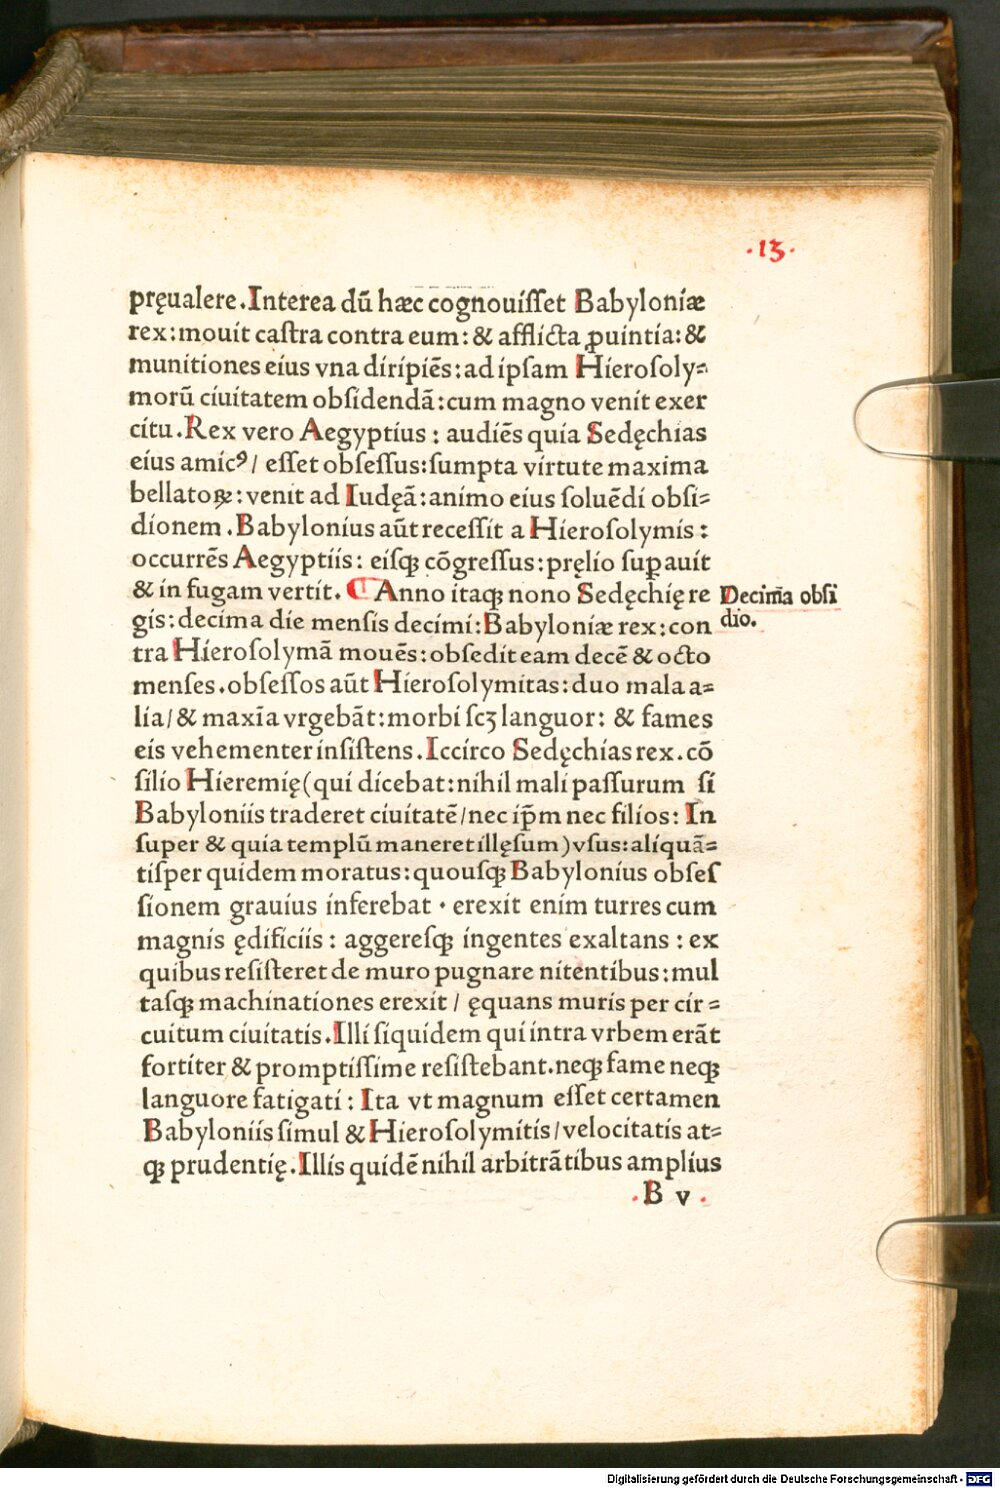 .13.
pręualere. Interea dũ hæc cognouiſſet Babyloniæ
rex: mouit caſtra contra eum: & afflicta ꝓuintia: &
munitiones eius vna diripiẽs: ad ipſam Hieroſoly⸗
morũ ciuitatem obſidendã: cum magno venit exer
citu. Rex vero Aegyptius: audiẽs quia Sedęchias
eius amicꝰ/ eſſet obſeſſus: ſumpta virtute maxima
bellatoꝝ: venit ad Iudęã: animo eius ſoluẽdi obſi⸗
dionem. Babylonius aũt receſſit a Hieroſolymis:
occurrẽs Aegyptiis: eiſqꝫ cõgreſſus: pręlio ſuꝑauit
& in fugam vertit. ¶ Anno itaqꝫ nono Sedęchię re
Decim̃a obſi
dio.
gis: decima die menſis decimi: Babyloniæ rex: con
tra Hieroſolymã mouẽs: obſedit eam decẽ & octo
menſes. obſeſſos aũt Hieroſolymitas: duo mala a⸗
lia/ & maxĩa vrgebãt: morbi ſcꝫ languor: & fames
eis vehementer inſiſtens. Iccirco Sedęchias rex. cõ
ſilio Hieremię (qui dicebat: nihil mali paſſurum ſi
Babyloniis traderet ciuitatẽ/ nec ip̃m nec filios: In
ſuper & quia templũ maneret illęſum) vſus: aliquã⸗
tiſper quidem moratus: quouſqꝫ Babylonius obſeſ
ſionem grauius inferebat · erexit enim turres cum
magnis ędificiis: aggereſqꝫ ingentes exaltans: ex
quibus reſiſteret de muro pugnare nitentibus: mul
taſqꝫ machinationes erexit / ęquans muris per cir⸗
cuitum ciuitatis. Illi ſiquidem qui intra vrbem erãt
fortiter & promptiſſime reſiſtebant. neqꝫ fame neqꝫ
languore fatigati: Ita vt magnum eſſet certamen
Babyloniis ſimul & Hieroſolymitis/ velocitatis at⸗
qꝫ prudentię. Illis quidẽ nihil arbitrãtibus amplius
.B v.
Digitalisierung gefördert durch die Deutsche Forschungsgemeinschaft - DFG